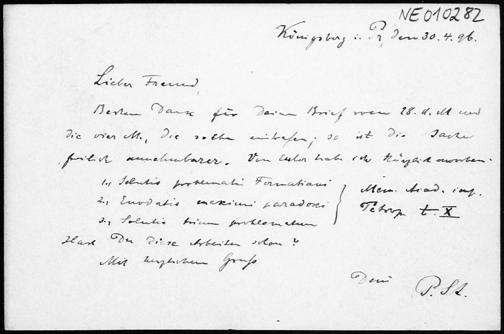 NE010282
Königsberg i. Pr, den 30.4.96.
Lieber Freund,
Besten Dank für Deinen Brief vom 28. d. M und
die vier M., die selbe eintrafen; so ist die Sache
freilich annehmbarer. Von Euler habe ich kürzlich erworben:
1, Solutio problematis Fermatiani
2, Enodatio maximi paradoxi
3, Solutio trium problematum
Mem. Acad. imp.
Petrop t. X
Hast Du diese Arbeiten schon?
Mit herzlichem Gruß
Dein P. St.